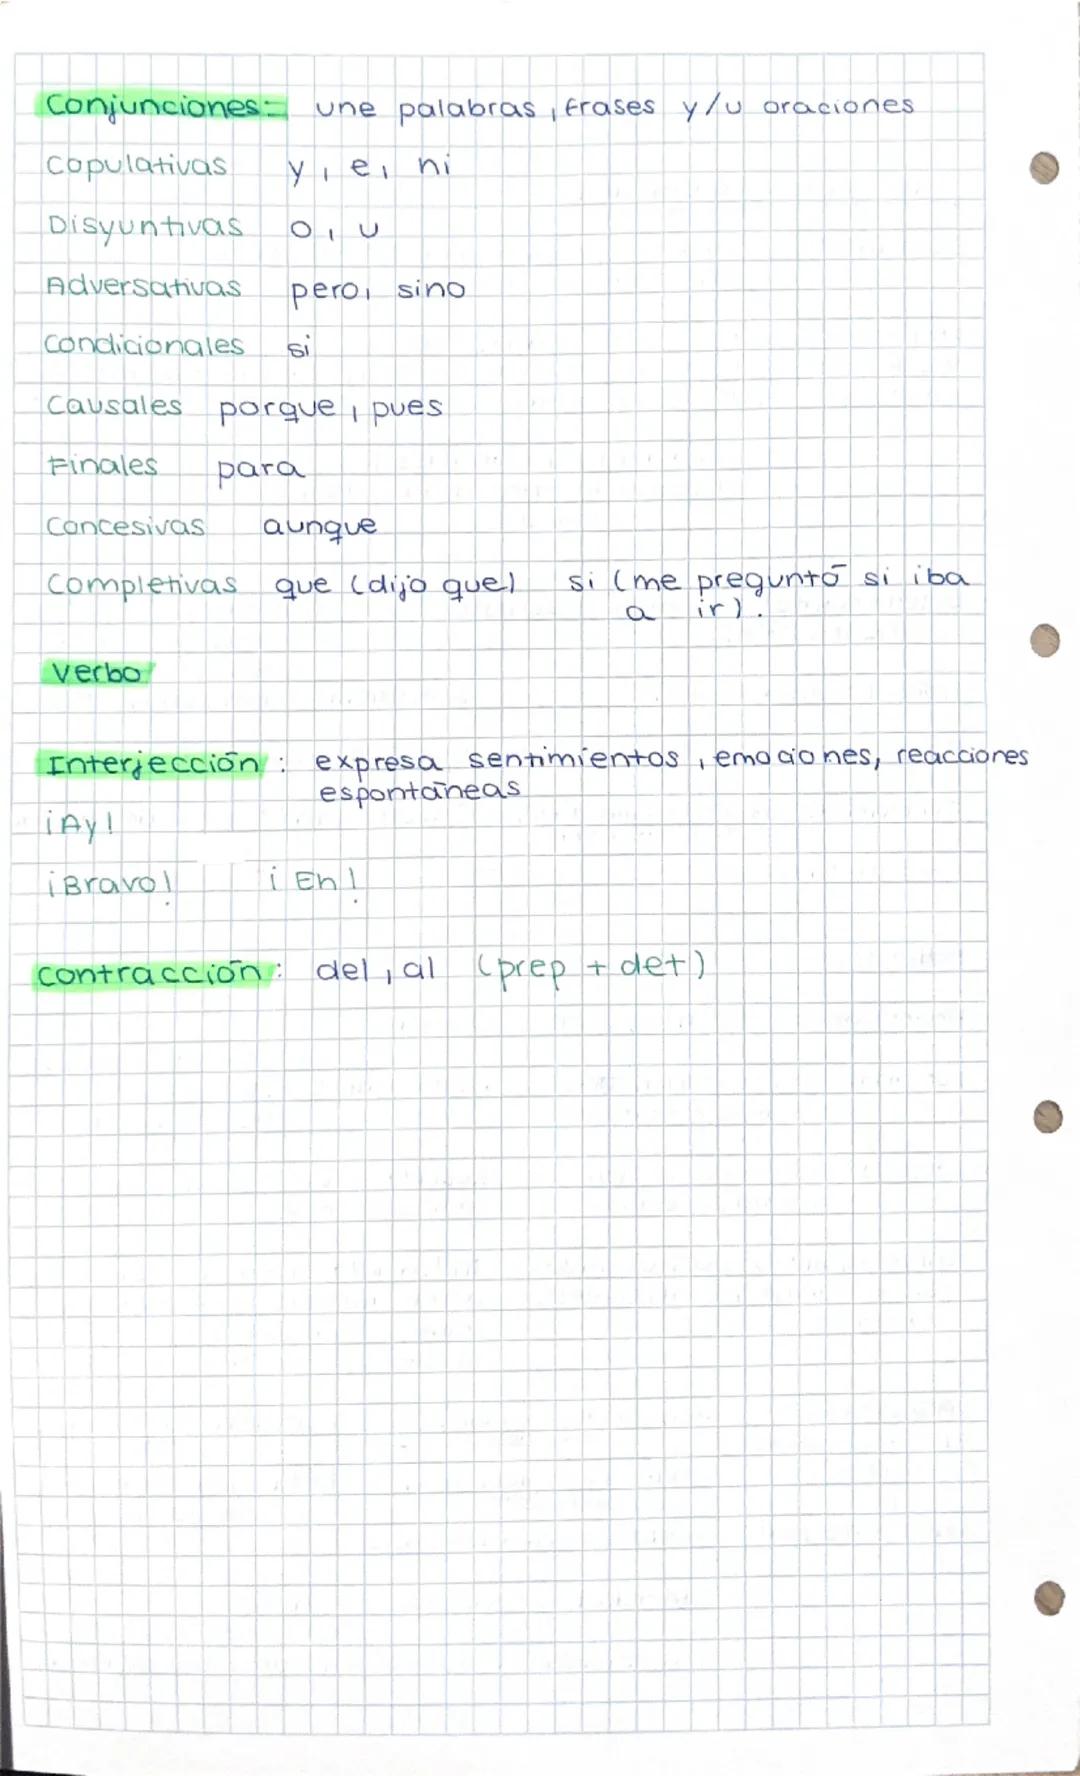 Conjunciones: une palabras, frases y/u oraciones
Copulativas y, e, ni
Disyuntivas o, u
Adversativas pero, sino
Condicionales si
Causales porque, pues
Finales para
Concesivas aunque
Completivas que (dijo que) si (me preguntó si iba
a ir).
Verbo
Interjección: expresa sentimientos, emociones, reacciones
espontáneas
¡Ay!
¡Bravo! ¡Eh!
Contracción: del, al (prep + det)